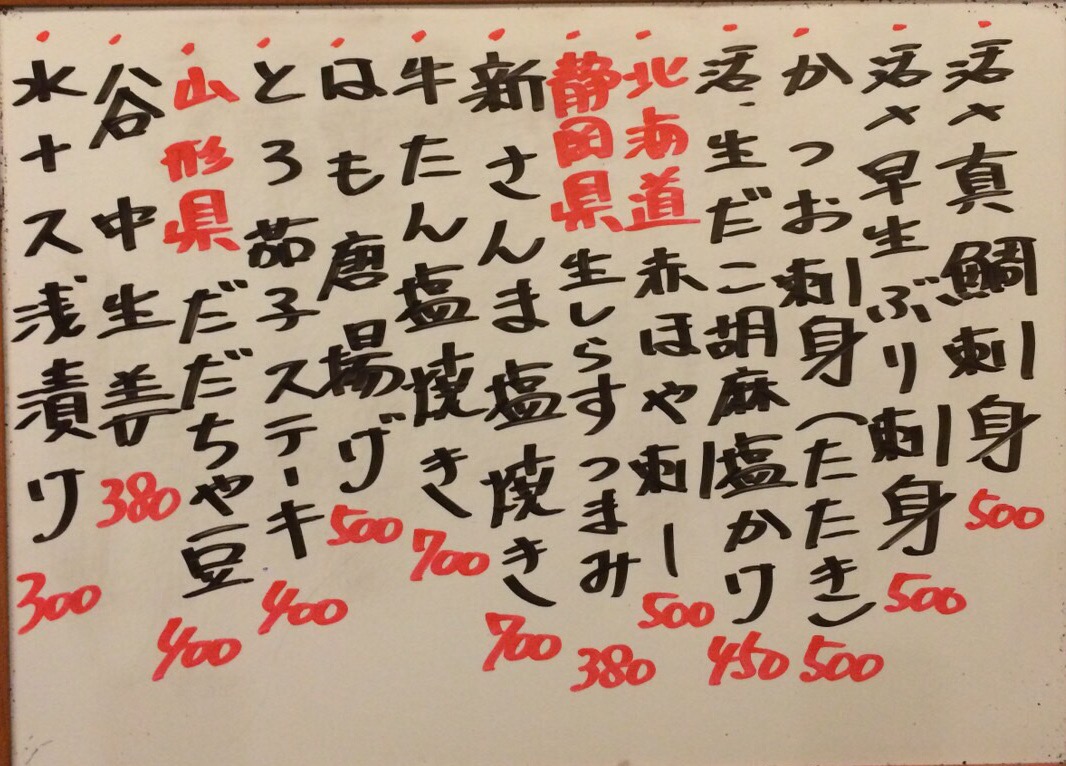 活〆真鯛刺身 500
活〆早生ぶり刺身 500
かつお刺身(たたき) 500
活・生だこ胡麻塩かけ 450
北海道赤ほや刺し 500
静岡県生しらすつまみ 380
新さんま塩焼き 700
牛たん塩焼き 700
はも唐揚げ 500
とろ茄子ステーキ 400
山形県だだちゃ豆 400
谷中生姜 380
水ナス浅漬け 300